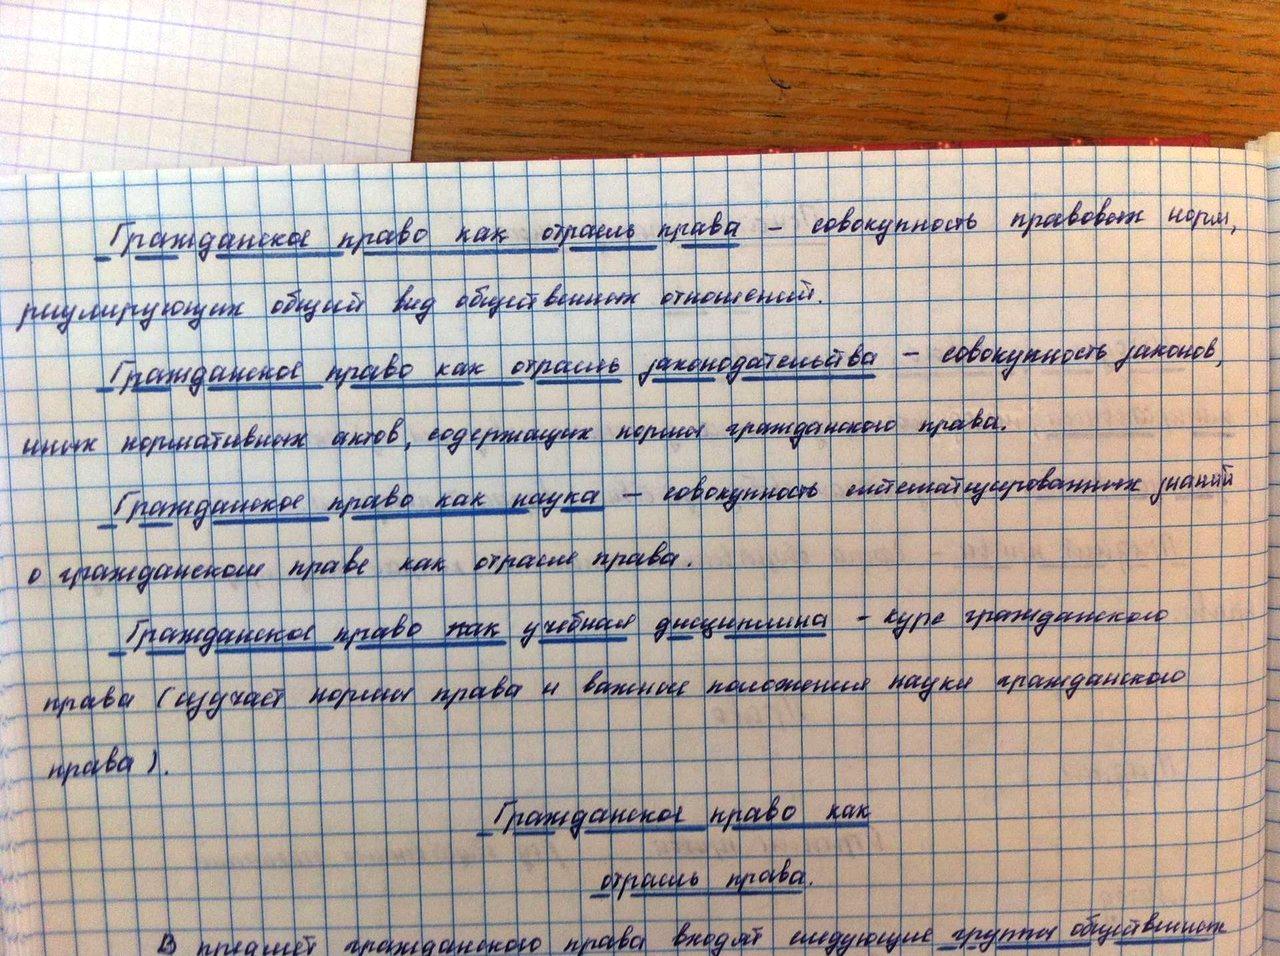 Гражданское право как отрасль права – совокупность правовых норм,
регулирующих общий вид общественных отношений.
Гражданское право как отрасль законодательства – совокупность законов,
иных нормативных актов, содержащих нормы гражданского права.
Гражданское право как наука – совокупность систематизированных знаний
о гражданском праве как отрасли права.
Гражданское право как учебная дисциплина – курс гражданского
права (изучает нормы права и важные положения науки гражданского
права).
Гражданское право как
отрасль права.
В предмет гражданского права входят следующие группы общественных